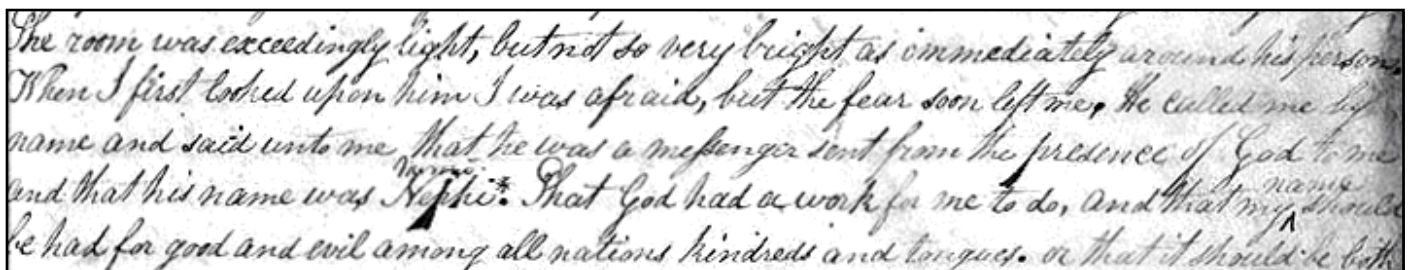 The room was exceedingly light, but not so very bright as immediately around his person.
When I first looked upon him I was afraid, but the fear soon left me, He called me by
name and said unto me that he was a messenger sent from the presence of God to me
Moroni *
and that his name was Nephi. That God had a work for me to do, and that my ^ name should
be had for good and evil among all nations kindreds and tongues. or that it should be both